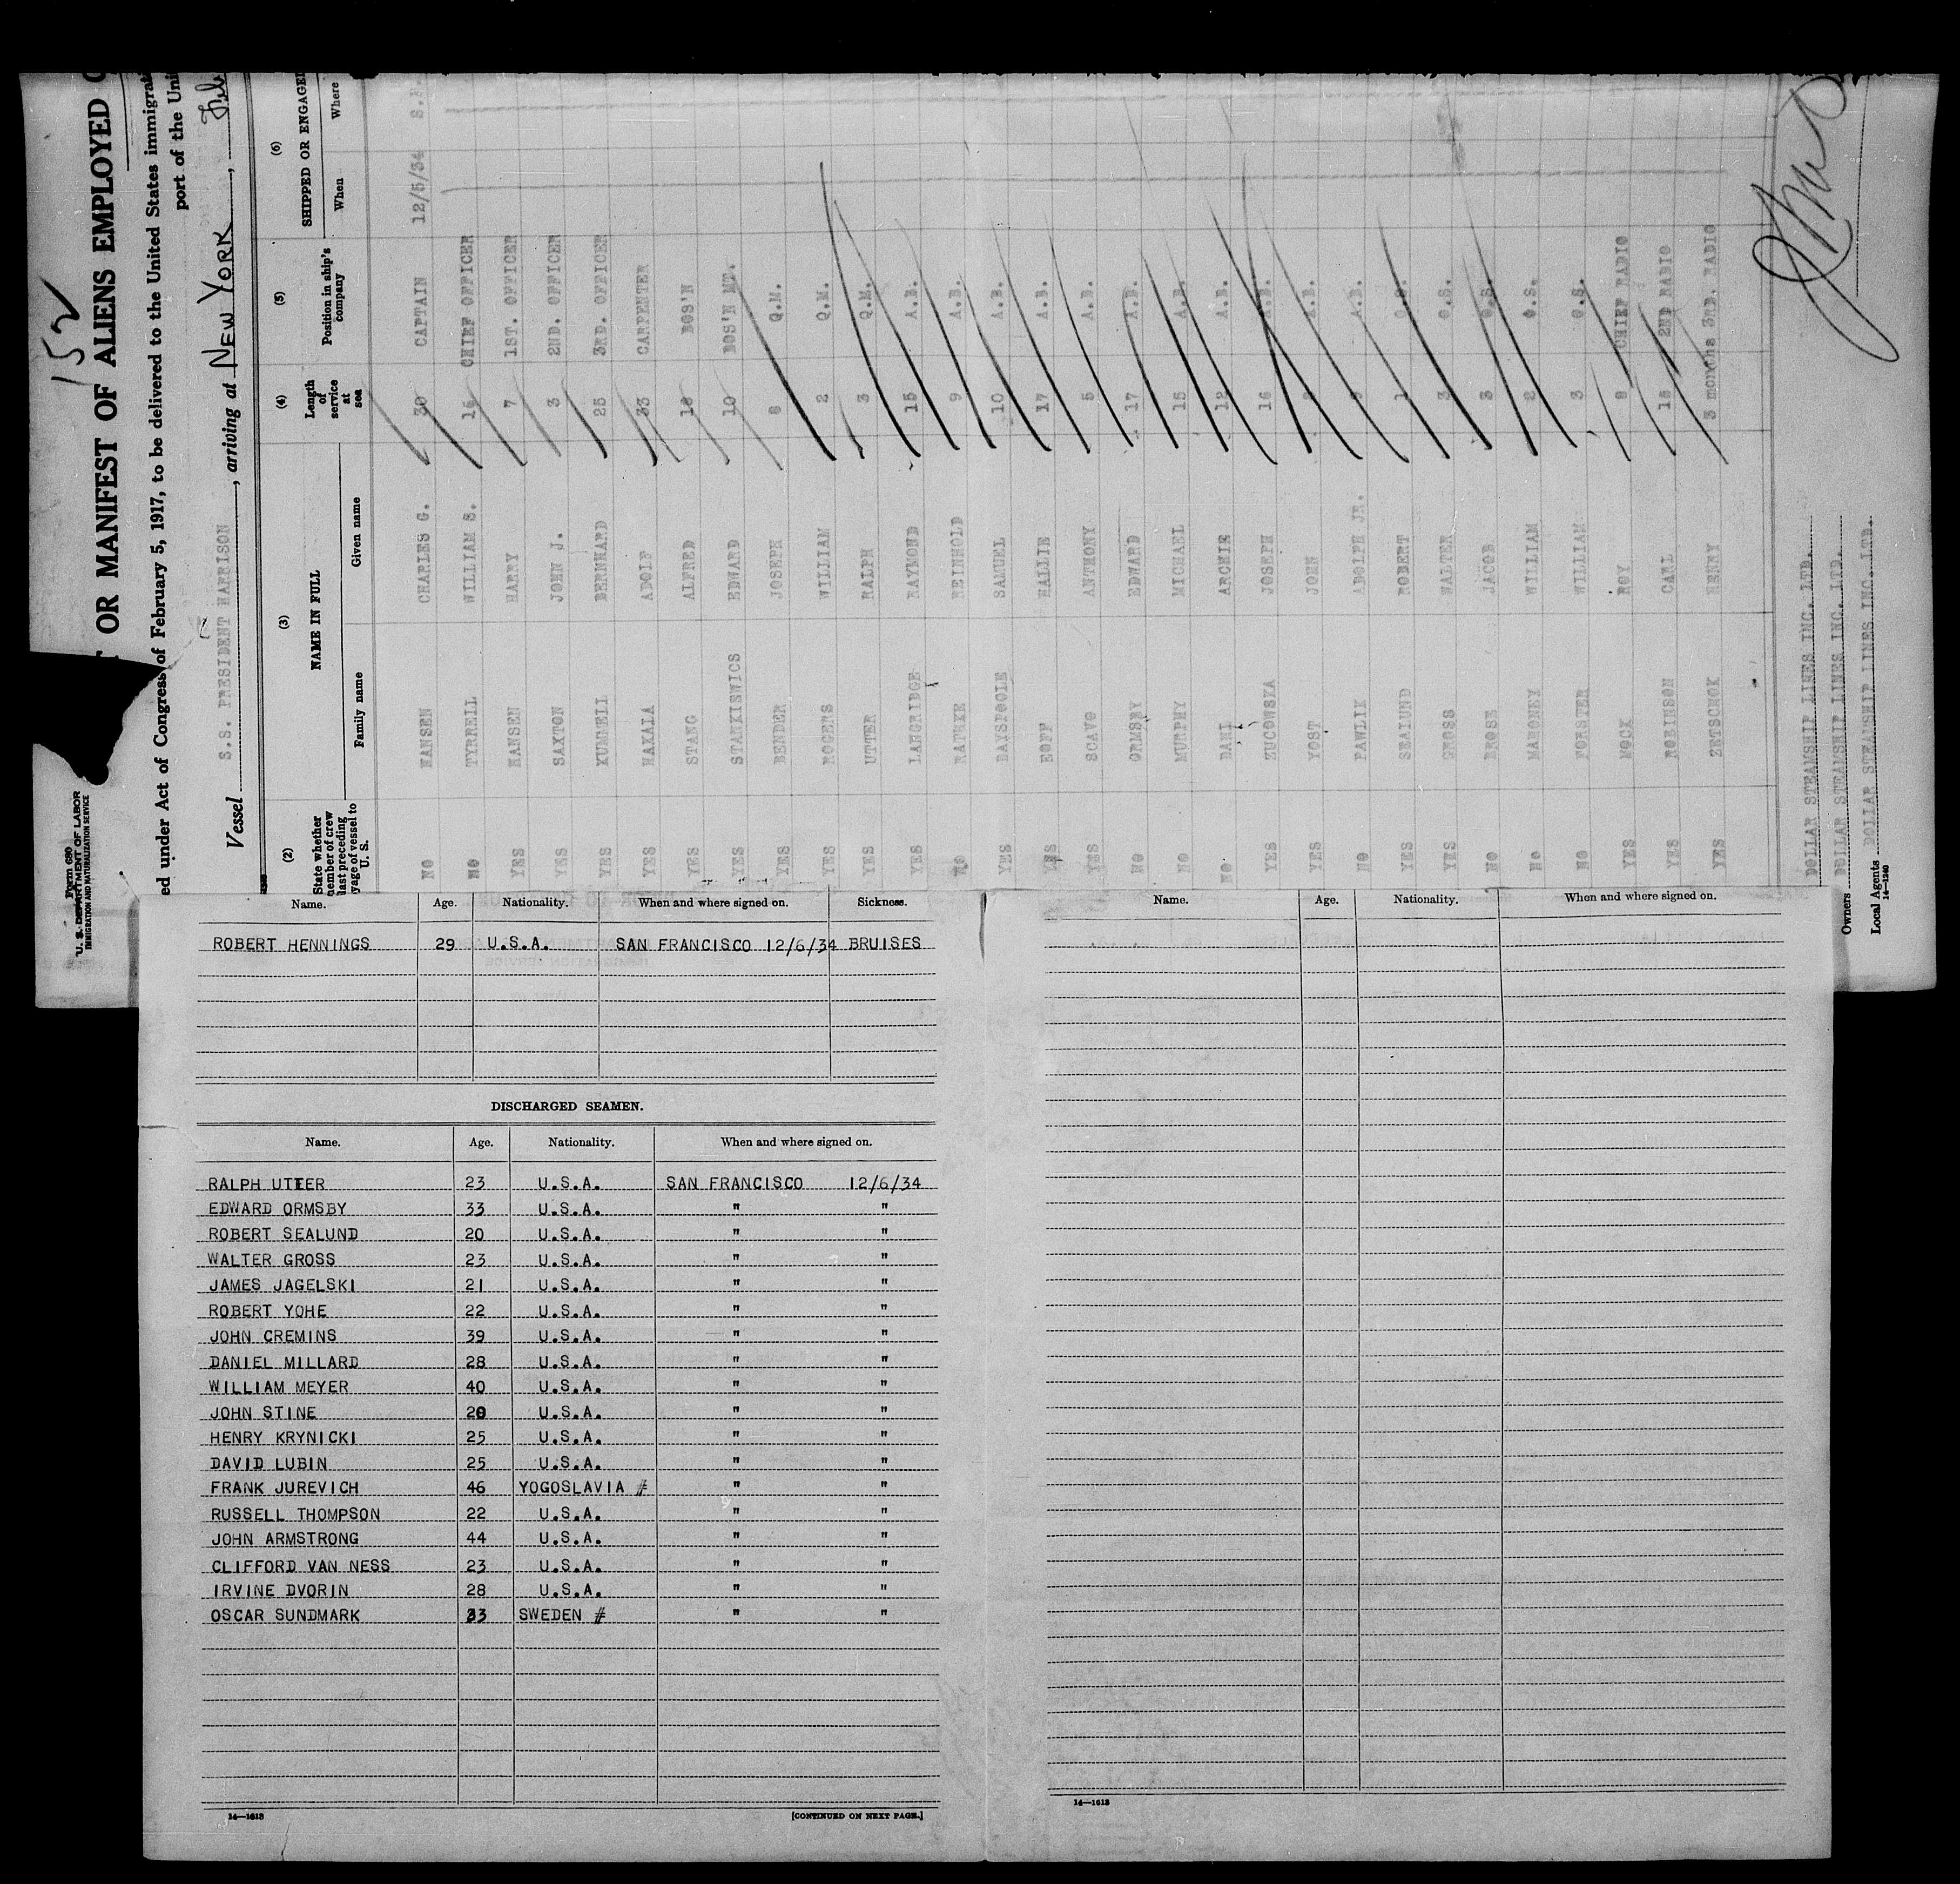 152
OR MANIFEST OF ALIENS EMPLOYED
ed under Act of Congress of February 5, 1917, to be delivered to the United States immigrat
port of the Uni
Vessel S.S. PRESIDENT HARRISON, arriving at NEW YORK, Feb
Form 680
U. S. DEPARTMENT OF LABOR
IMMIGRATION AND NATURALIZATION SERVICE
(2) (3) (4) (5) (6)
State whether member of crew last preceding voyage of vessel to U. S. NAME IN FULL Length of service at sea Position in ship's company SHIPPED OR ENGAGED
Family name Given name When Where
NO HANSEN CHARLES G. 30 CAPTAIN 12/5/34 S.F.
NO TYRRELL WILLIAM S. 16 CHIEF OFFICER
YES HANSEN HARRY 7 1ST. OFFICER
YES SAXTON JOHN J. 3 2ND. OFFICER
YES KUMMELL BERNHARD 25 3RD. OFFICER
YES HAXALA ADOLF 33 CARPENTER
YES STANG ALFRED 18 BOS'N
YES STANKIEWICS EDWARD 10 BOS'N MT.
YES BENDER JOSEPH 8 Q.M.
YES ROGERS WILLIAM 2 Q.M.
YES UTTER RALPH 3 Q.M.
YES LANGRIDGE RAYMOND 15 A.B.
NO RATHKE REINHOLD 9 A.B.
YES DAYSPOOLE SAMUEL 10 A.B.
YES EOFF HALLIE 17 A.B.
YES SCAVO ANTHONY 5 A.B.
NO ORMSBY EDWARD 17 A.B.
NO MURPHY MICHAEL 15 A.B.
NO DAHL ARCHIE 12 A.B.
YES ZUCOWSKA JOSEPH 16 A.B.
YES YOST JOHN A.B.
NO PAWLIK ADOLPH JR. A.B.
YES SEALUND ROBERT 1 O.S.
YES GROSS WALTER 3 O.S.
NO BROSE JACOB 3 O.S.
NO MAHONEY WILLIAM 2 O.S.
NO FORSTER WILLIAM 3 O.S.
YES MOCK ROY 8 CHIEF RADIO
YES ROBINSON CARL 15 2ND RADIO
YES ZETSCHOK HENRY 3 months 3RD. RADIO
DOLLAR STEAMSHIP LINES INC. LTD.
Owners DOLLAR STEAMSHIP LINES INC. LTD.
Local Agents DOLLAR STEAMSHIP LINES INC. LTD.
14—1240
Name. Age. Nationality. When and where signed on. Sickness.
ROBERT HENNINGS 29 U.S.A. SAN FRANCISCO 12/6/34 BRUISES
DISCHARGED SEAMEN.
Name. Age. Nationality. When and where signed on.
RALPH UTTER 23 U.S.A. SAN FRANCISCO 12/6/34
EDWARD ORMSBY 33 U.S.A. " "
ROBERT SEALUND 20 U.S.A. " "
WALTER GROSS 23 U.S.A. " "
JAMES JAGELSKI 21 U.S.A. " "
ROBERT YOHE 22 U.S.A. " "
JOHN CREMINS 39 U.S.A. " "
DANIEL MILLARD 28 U.S.A. " "
WILLIAM MEYER 40 U.S.A. " "
JOHN STINE 20 U.S.A. " "
HENRY KRYNICKI 25 U.S.A. " "
DAVID LUBIN 25 U.S.A. " "
FRANK JUREVICH 46 YOGOSLAVIA # " "
RUSSELL THOMPSON 22 U.S.A. " "
JOHN ARMSTRONG 44 U.S.A. " "
CLIFFORD VAN NESS 23 U.S.A. " "
IRVINE DVORIN 28 U.S.A. " "
OSCAR SUNDMARK 33 SWEDEN # " "
14—1613 [CONTINUED ON NEXT PAGE.]
Name. Age. Nationality. When and where signed on.
14—1613